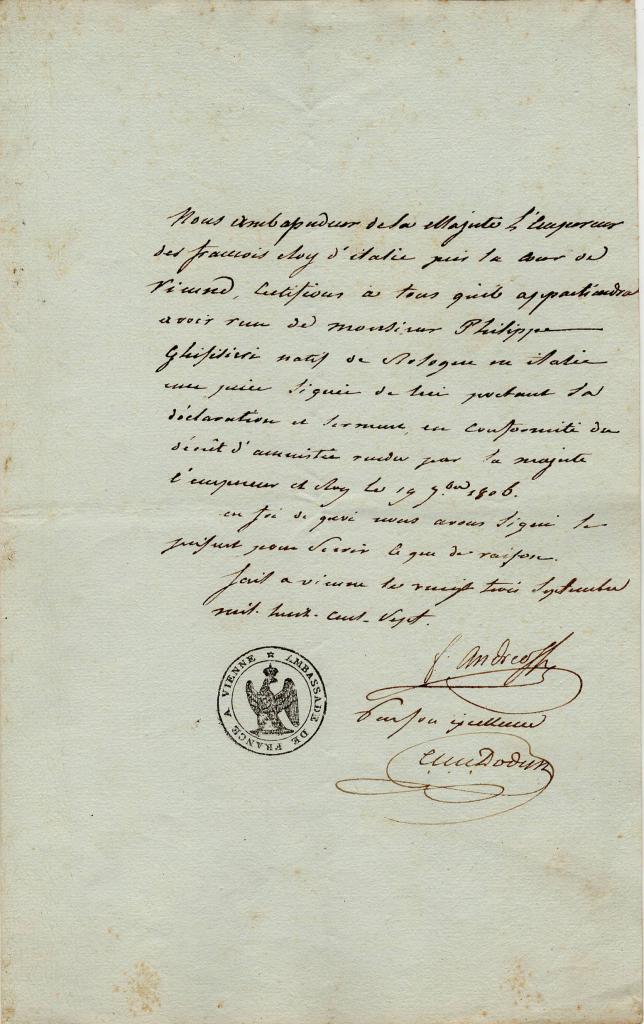 Nous ambassadeur de sa Majesté L'Empereur
des francois Roy d'italie près la cour de
Vienne, Certifions à tous qu'il appartiendra
avoir reçu de monsieur Philippe
Ghisilieri natif de Bologne en italie
une pièce signée de lui portant sa
déclaration et serment en conformité du
décrèt d'amnistie rendu par sa majesté
l'empereur et Roy le 19 9bre 1806.
en foi de quoi nous avons signé le
présent pour servir ce que de raison.
fait a vienne le vingt trois Septembre
mil-huit-cent-Sept.
f. Andreossy
Par son excellence
Dodun
AMBASSADE DE FRANCE A VIENNE